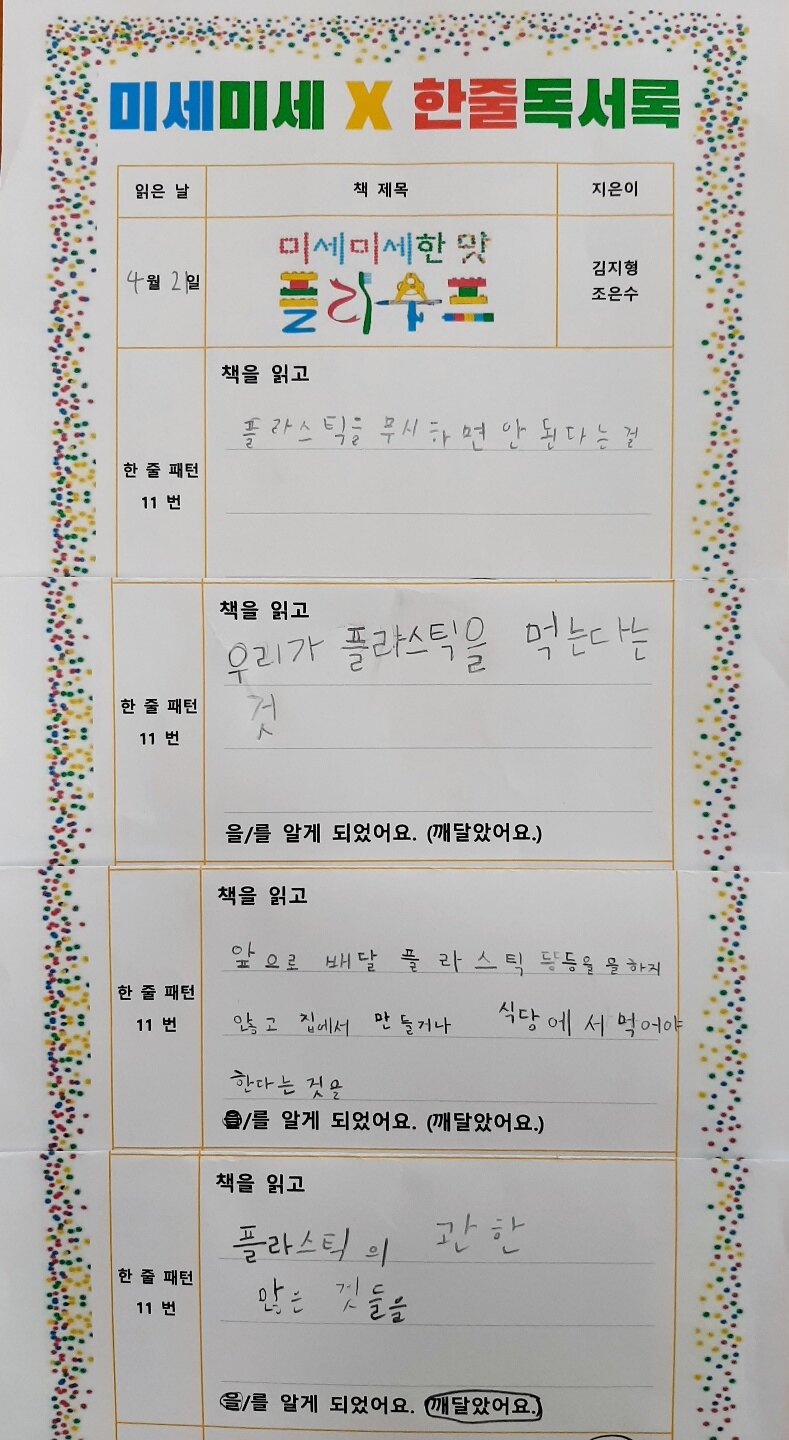 미세미세 X 한줄독서록
읽은 날 책 제목 지은이
4월 21일
미세미세한 맛
플라수프
김지형
조은수
책을 읽고
플라스틱을 무시하면 안 된다는 걸
한 줄 패턴
11 번
책을 읽고
우리가 플라스틱을 먹는다는
것
한 줄 패턴
11 번
을/를 알게 되었어요. (깨달았어요.)
책을 읽고
앞으로 배달 플라스틱 등등을 을 하지
않고 집에서 만들거나 식당에서 먹어야
한다는 것을
한 줄 패턴
11 번
을/를 알게 되었어요. (깨달았어요.)
책을 읽고
플라스틱의 관한
많은 것들을
한 줄 패턴
11 번
을/를 알게 되었어요. (깨달았어요.)